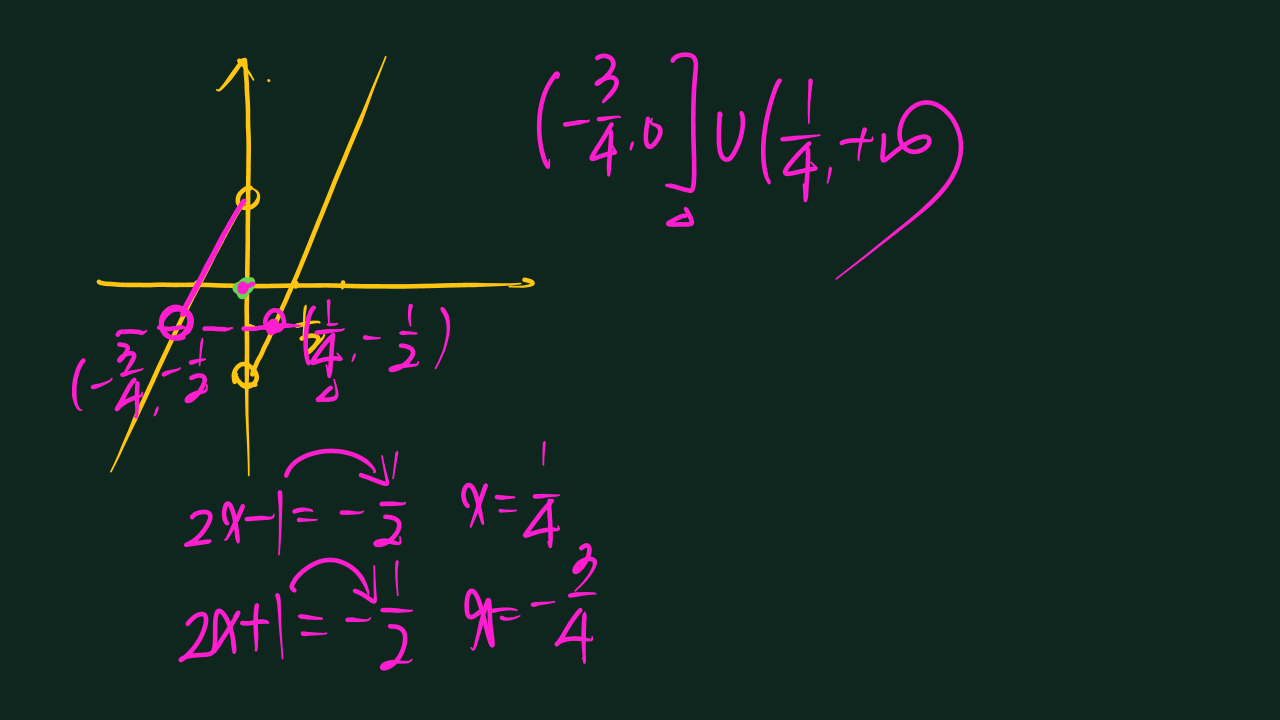 (-3/4, 0] ∪ (1/4, +∞
(-3/4, -1/2
(1/4, -1/2)
2x-1 = -1/2 x = 1/4
2x+1 = -1/2 x = -3/4